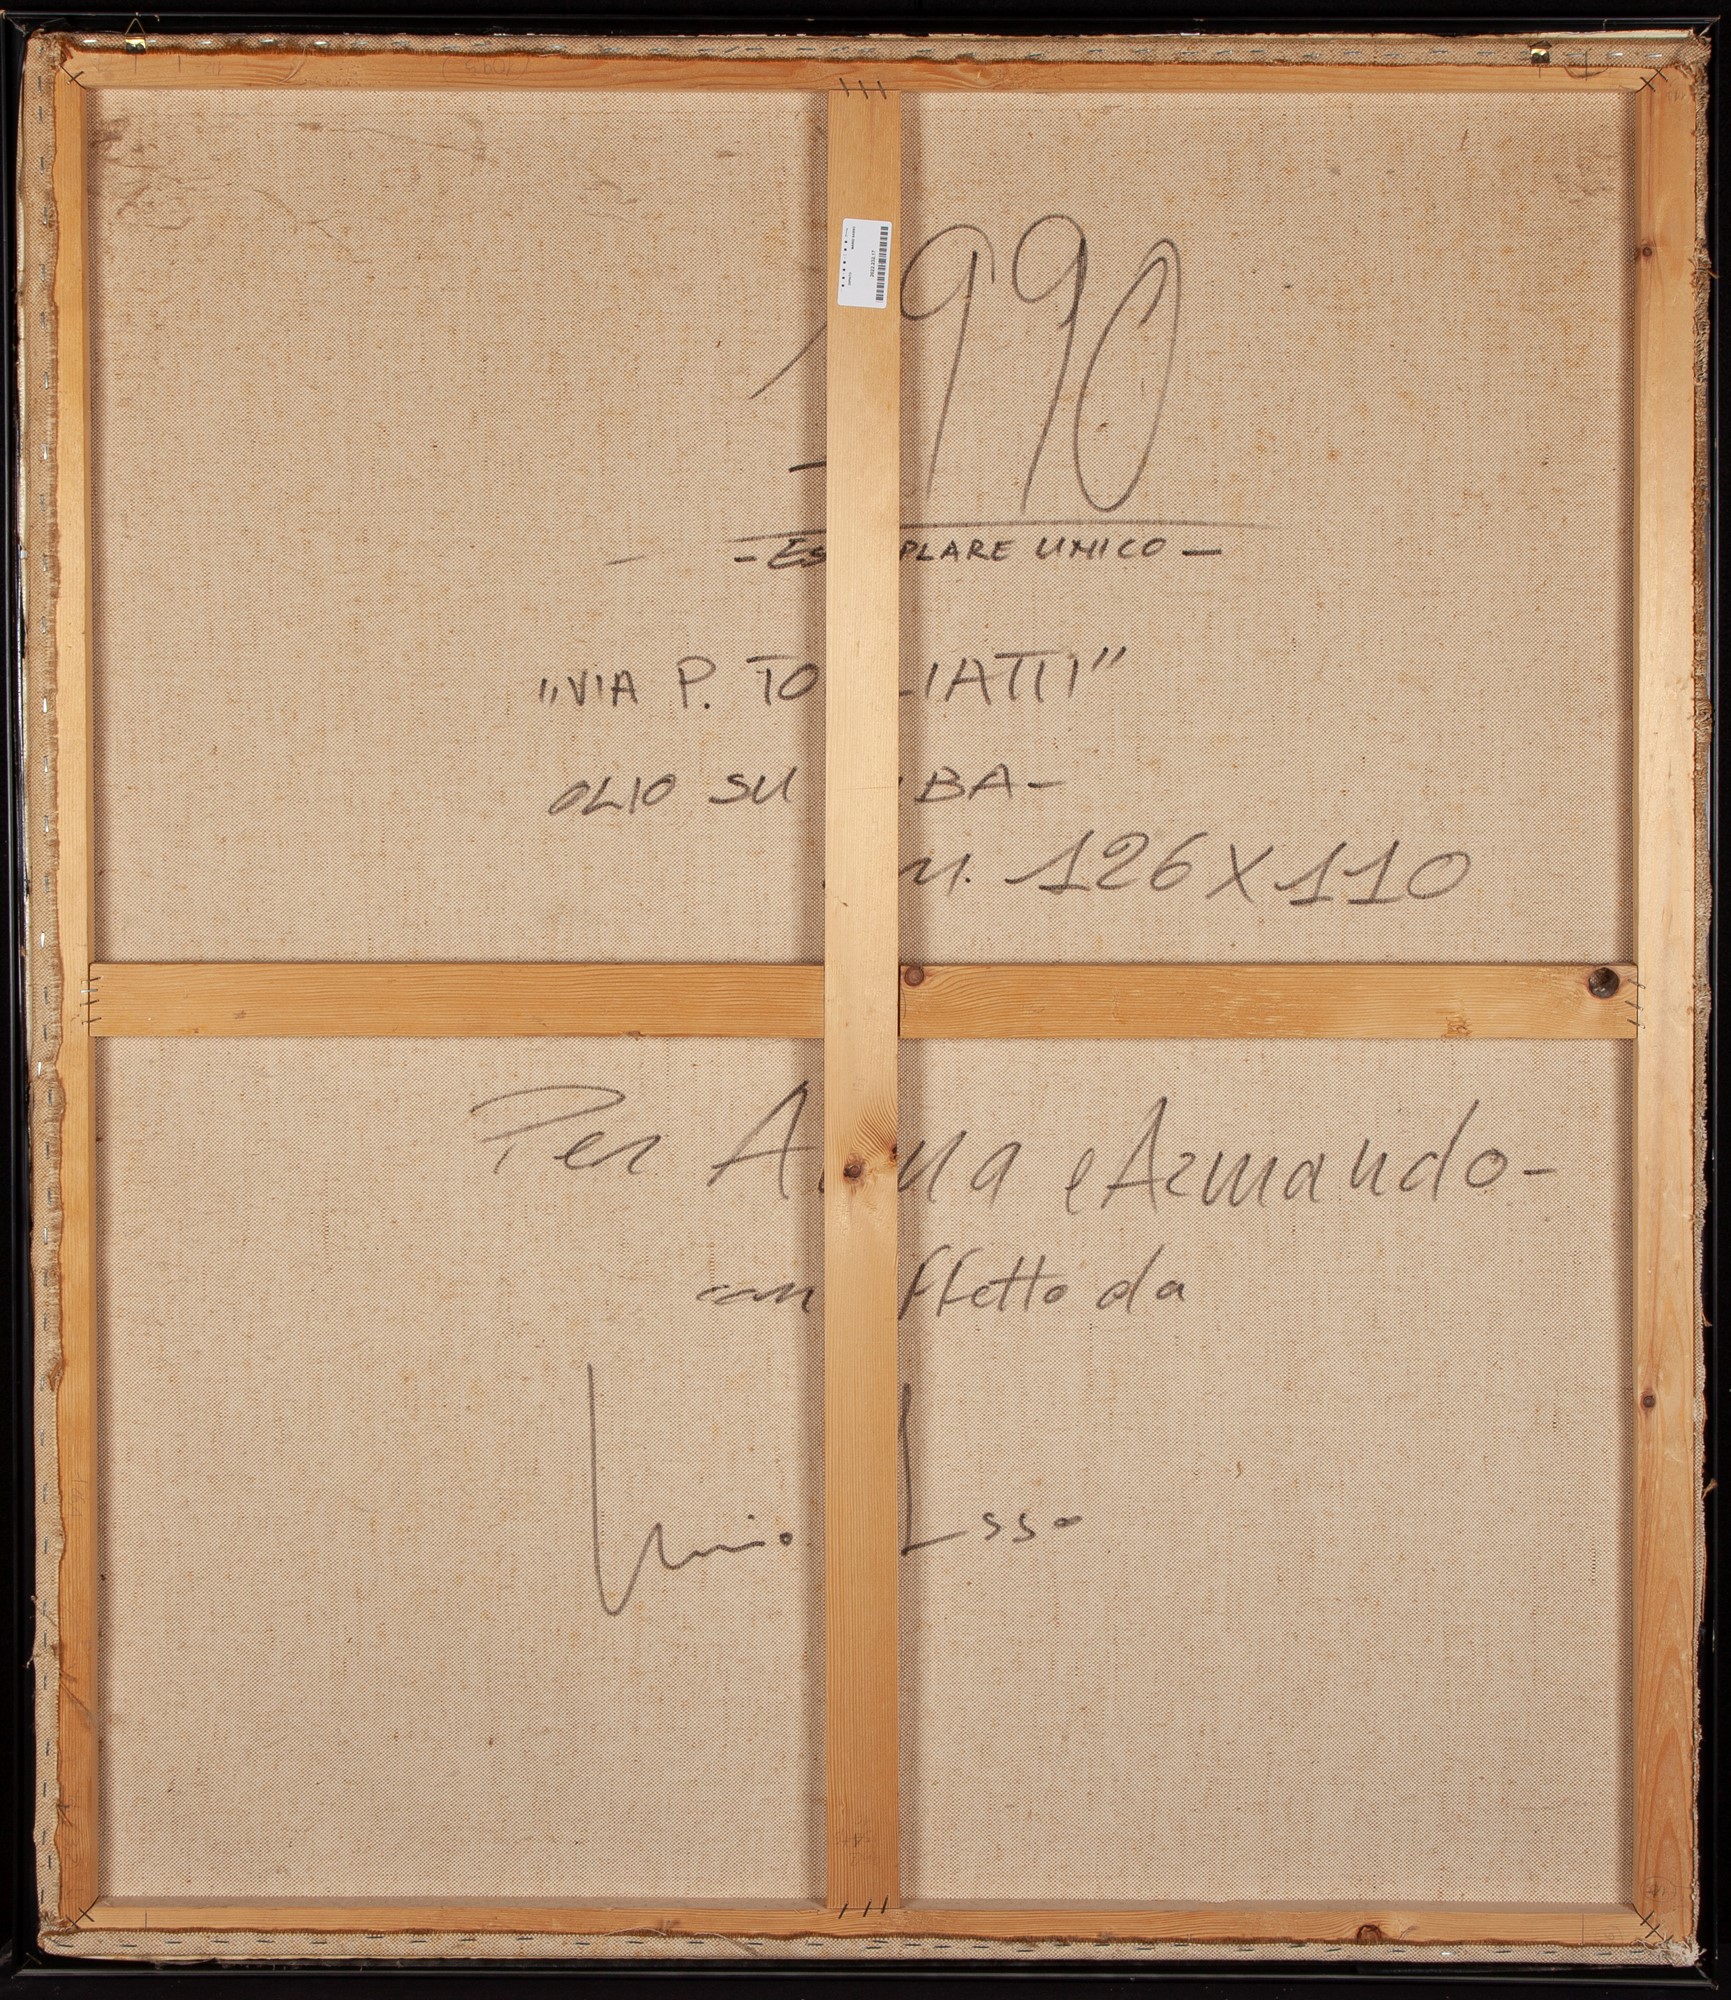 1990
- ES PLARE UNICO -
"VIA P. TO LIATTI"
OLIO SU BA-
126 X 110
Per Anna e Armando-
con ffetto da